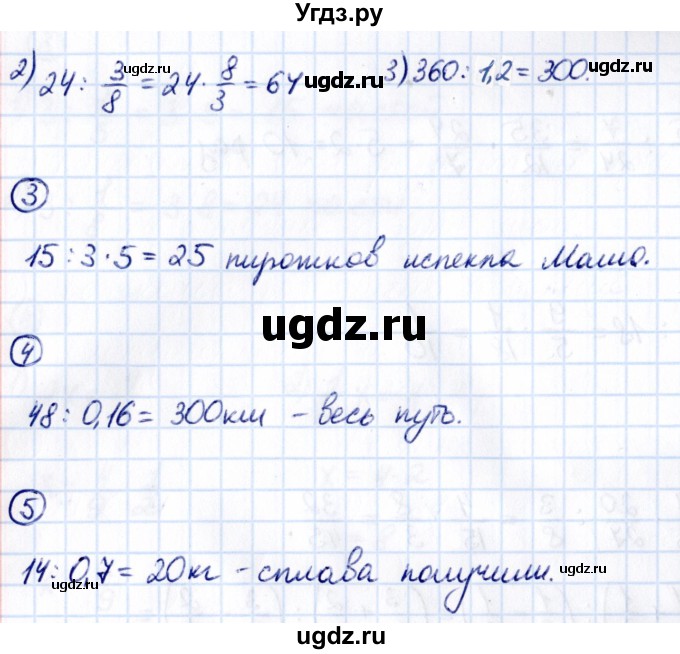 Угдз.ру
2) 24 : 3/8 = 24 · 8/3 = 64 3) 360 : 1,2 = 300.
ugdz.ru ugdz.ru ugdz.ru ugdz.ru
3
15 : 3 · 5 = 25 пирожков испекла Маша.
ugdz.ru
4
48 : 0,16 = 300 км – весь путь.
5
14 : 0,7 = 20 кг – сплава получили.
ugdz.ru ugdz.ru
ugdz.ru